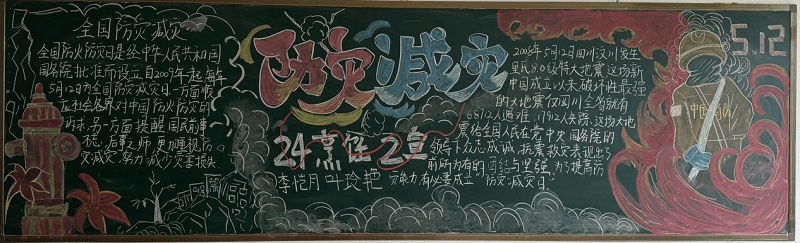 全国防灾减灾
全国防火防灾日是经中华人民共和国
国务院批准而设立自2009年起每年
5月12为全国防灾减灾日一方面顺
应社会各界对中国防火防灾的
诉求,另一方面提醒国民前事
不忘,后事之师,更加重视防
灾减灾,努力减少灾害损失
防灾减灾
24烹饪2班
李恺月 叶玲艳
2008年5月12日四川汶川发生
里氏8.0级特大地震,这场新
中国成立以来破坏性最强
的大地震仅四川全省就有
人遇难,17912人失踪,这场大地
震给全国人民在党中央国务院的
领导下众志成城,抗震救灾表现出了
前所为有的团结与坚强,为了提高防
灾能力有必要成立"防灾减灾日"
5.12
中国消防